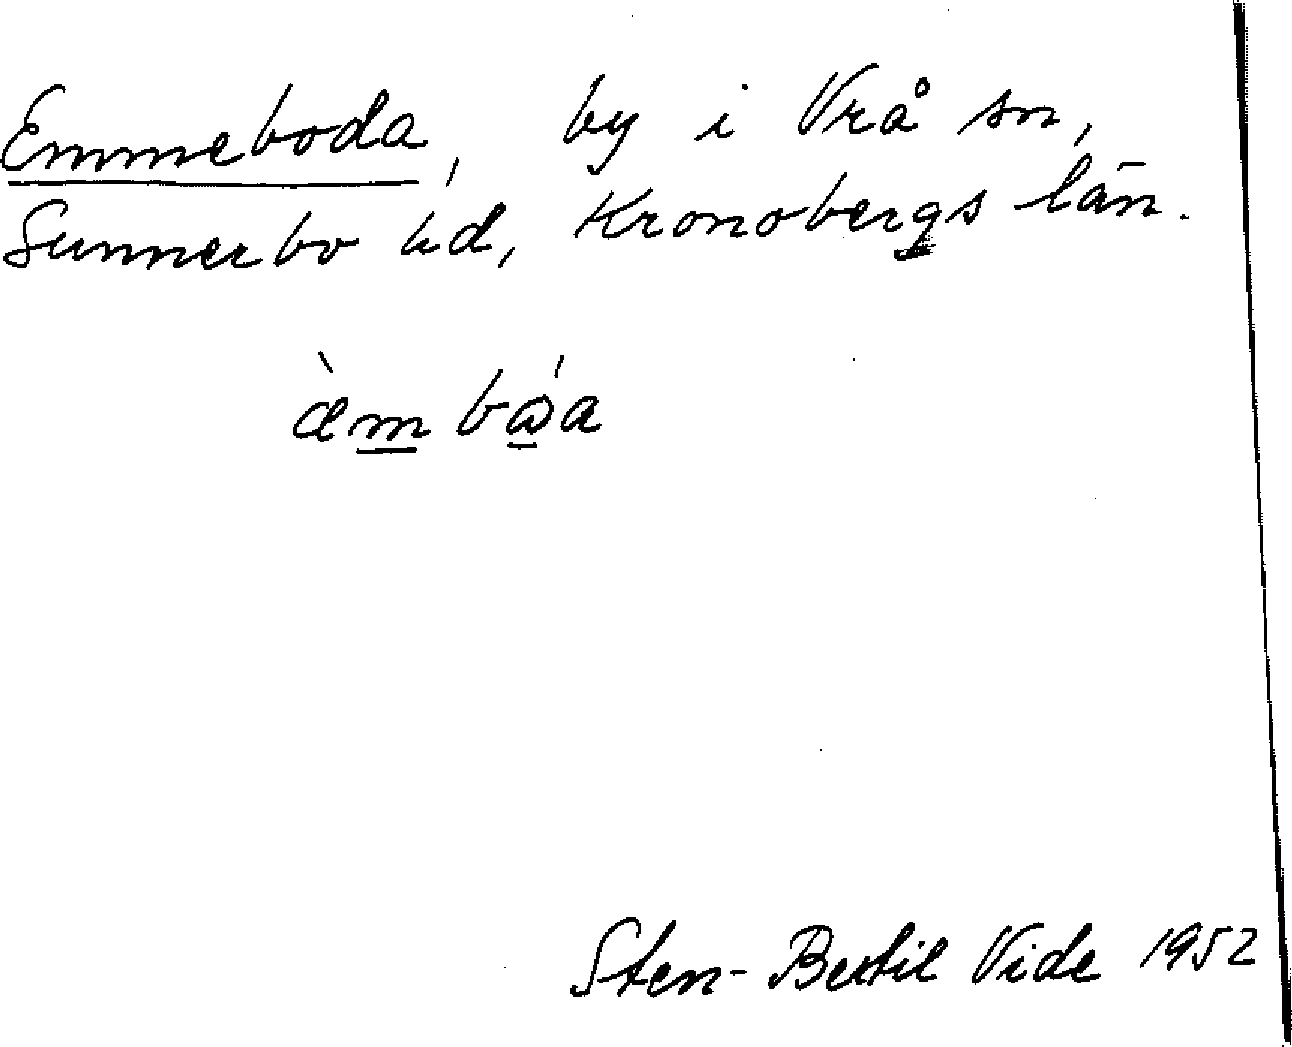 Emmeboda, by i Vrå sn,
Sunnerbo hd, Kronobergs län.
æ̀m bóa
Sten-Bertil Vide 1952